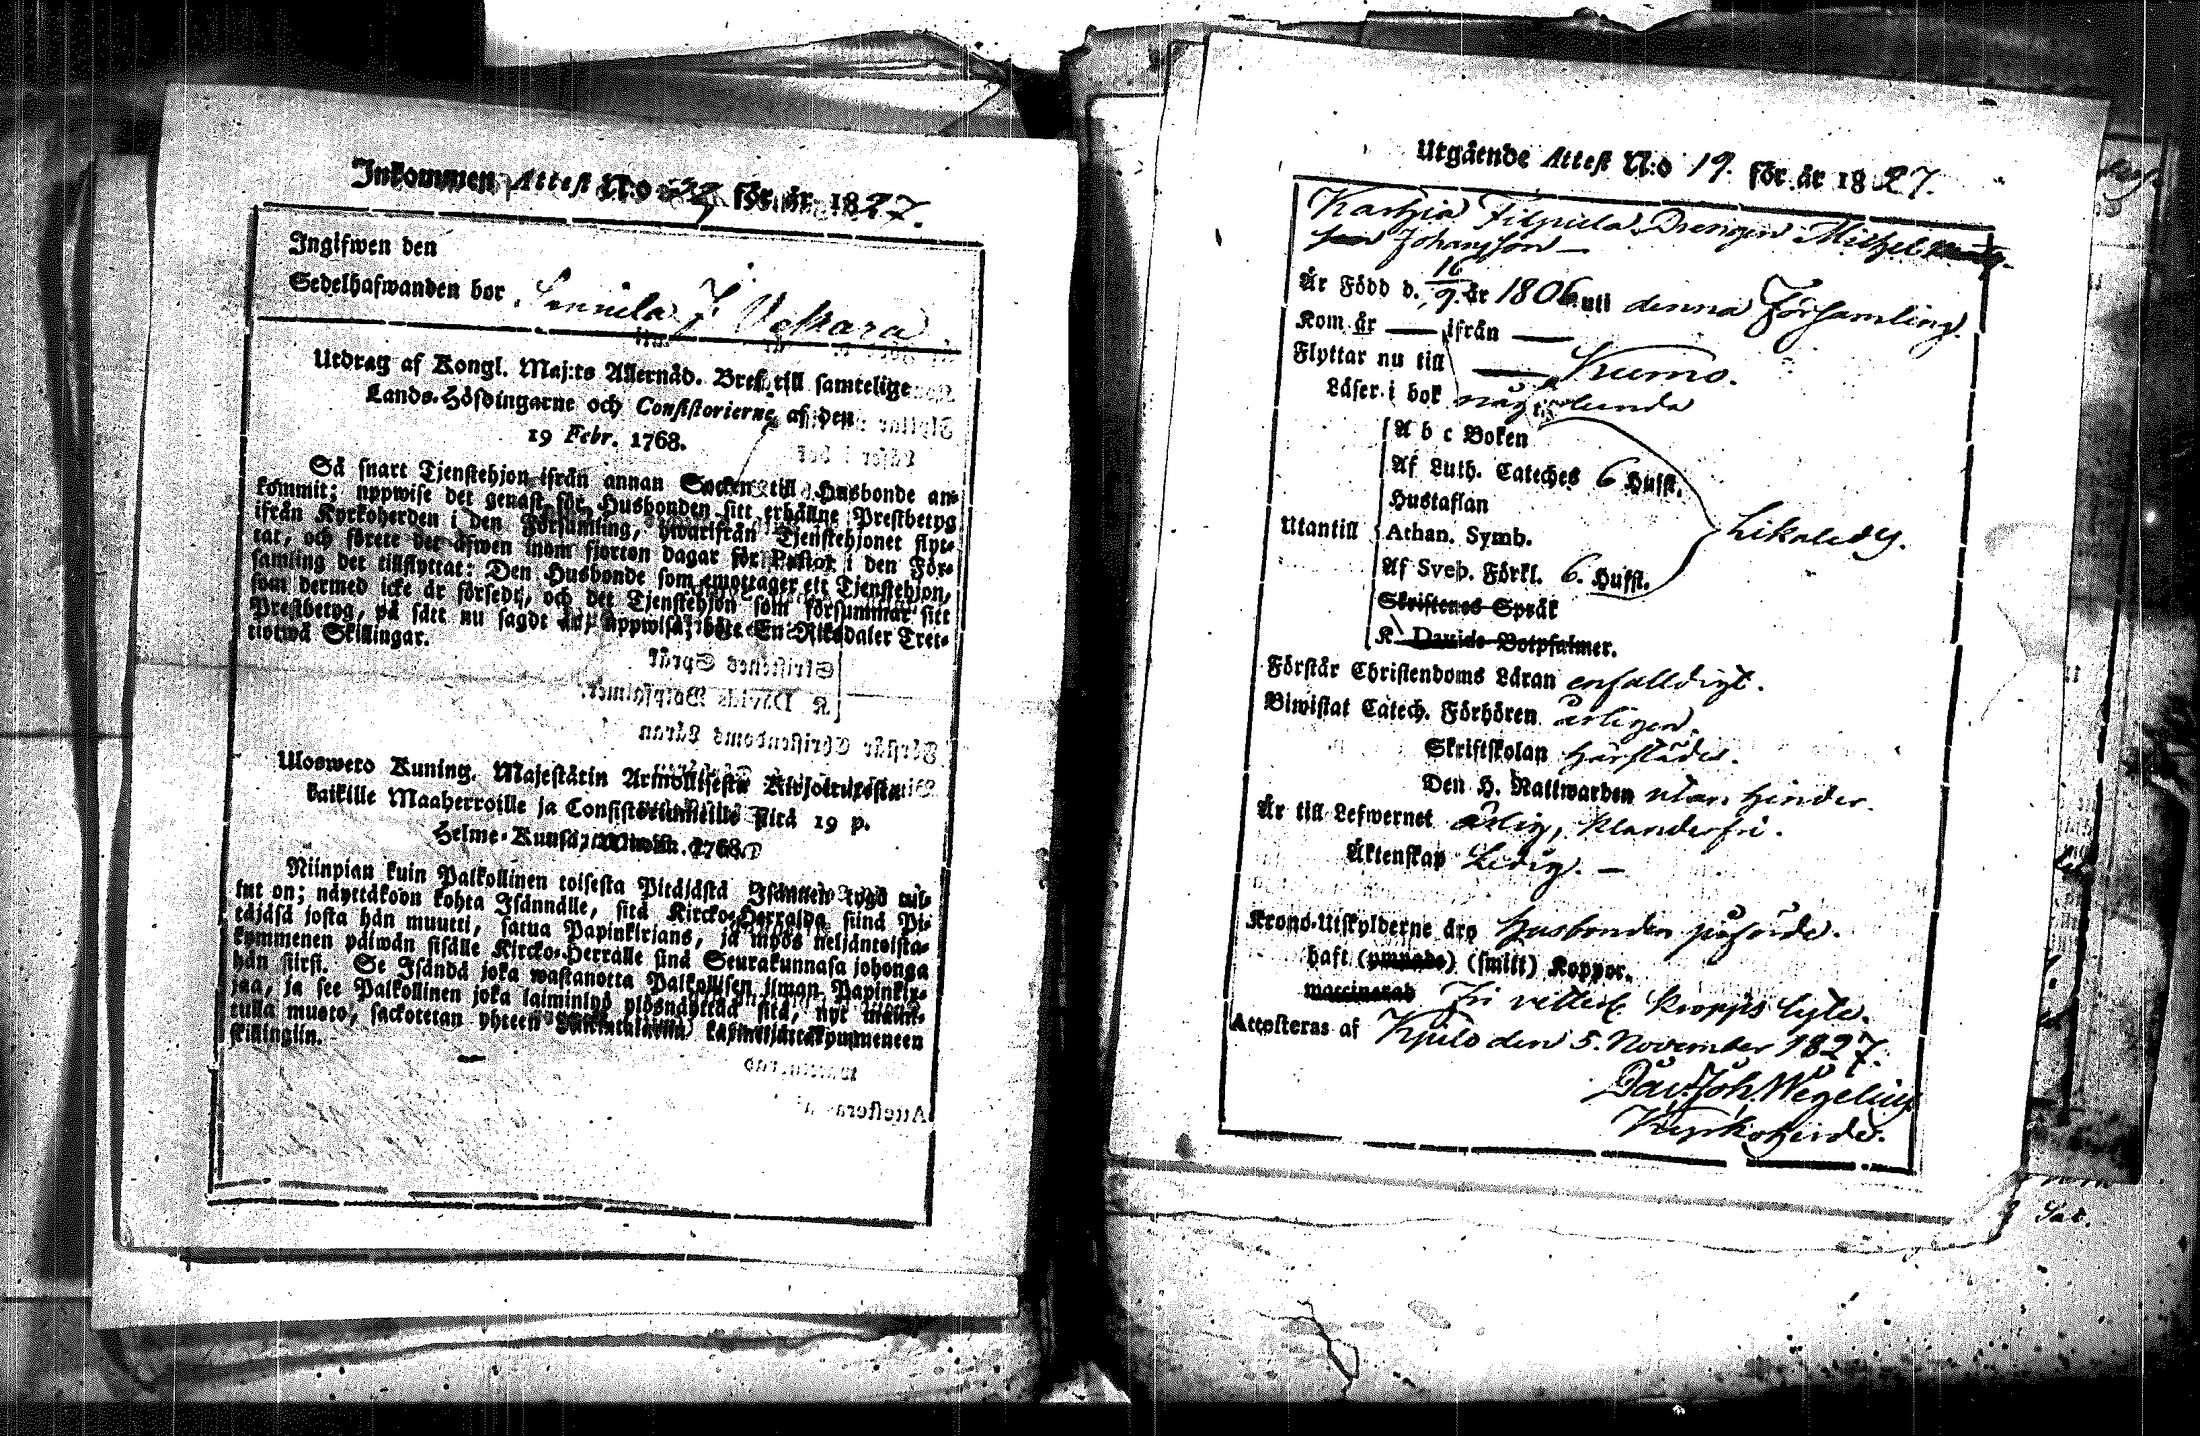 Inkommen Attest N:o 52 för år 1827.
Ingifwen den
Sedelhafwanden bor Sannila J Veskara
Utdrag af Kongl. Maj:ts Allernåd. Bref till samtelige
Lands-Höfdingarne och Consistorierne af den
19 Febr. 1768.
Så snart Tjenstehjon ifrån annan Socken till Husbonde an-
kommit; uppwise det genast för Husbonden sitt erhållne Prestbetyg
ifrån Kyrkoherden i den Församling, hwarifrån Tjenstehjonet flyt-
tat, och förete det äfwen inom fjorton dagar för Pastor i den För-
samling det tillflyttat: Den Husbonde som emottager ett Tjenstehjon,
som dermed icke är försedt, och det Tjenstehjon som försummar sitt
Prestbetyg, på sätt nu sagdt är, uppwisa, böte En Riksdaler Tret-
tiotwå Skillingar.
Uloswero Kuning. Majestätin Armollisesta Kirjoituxesta
kaikille Maaherroille ja Consistoriumeille siitä 19 p.
Helme-Kuusa, Wuonn. 1768.
Niinpian kuin Palkollinen toisesta Pitäjästä Isännen tygö tul-
lut on; näyttäköön kohta Isännälle, sitä Kircko-Herralda siinä Pi-
täjäsä josta hän muutti, saatua Papinkirjans, ja myös neljäntoista-
kymmenen päiwän sisälle Kircko-Herralle siinä Seurakunnasa johonga
hän siirsi. Se Isändä joka wastanotta Palkollisen ilman Papinkir-
jaa, ja see Palkollinen joka laiminlyö ylösnäyttää sitä, nyt
tulla muoto, sackotetan yhteen kolmeenkymmeneen
skillinglin.
Utgående Attest N:o 19. för år 1827.
Karhia Filpula Drengen Michel
Johansson —
Är Född d. 16/9. år 1806 uti denna Församling.
Kom år — ifrån —
Flyttar nu till — Kumo.
Läser i bok någorlunda
A b c Boken
Af Luth. Cateches 6 Hufst.
Hustaflan
Utantill Athan. Symb. Likaledes.
Af Sveb. Förkl. 6. Hufst.
Skriftenes Språk
K Davids Botpsalmer.
Förstår Christendoms Läran enfalldigt.
Biwistat Catech. Förhören årligen.
Skriftskolan härstädes.
Den H. Nattwarden utan hinder.
Är till Lefwernet ärlig, klanderfri.
Äktenskap Ledig. —
Krono-Utskylderne äro Husbonden påförde.
haft (ympade) (smitt) Koppor.
waccinerad Fri vetterl. kropps lyte.
Attesteras af Kjulo den 5. November 1827.
Dav. Joh. Wegelius
Kyrkoherde.